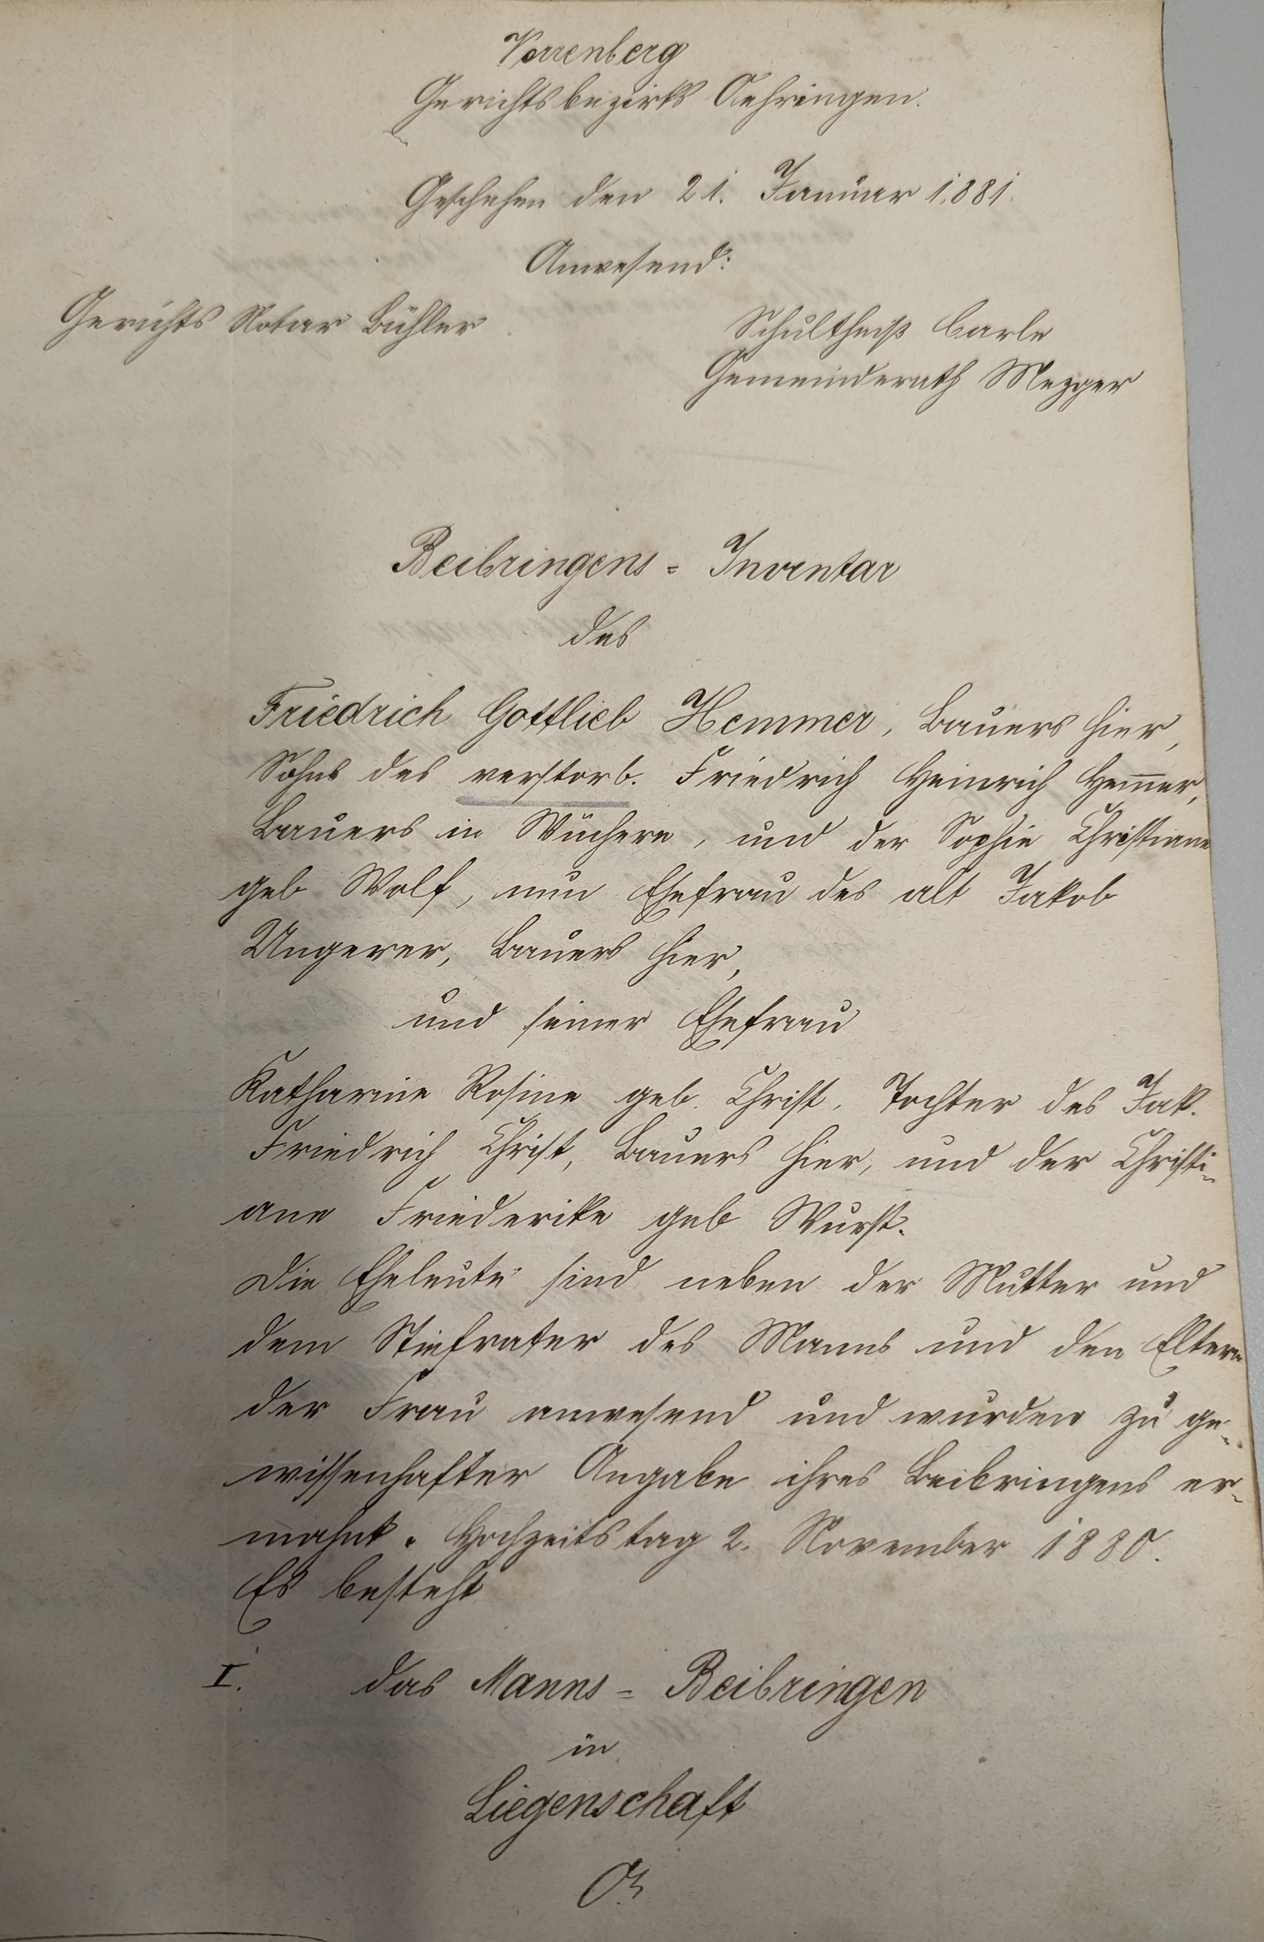 Verrenberg
Gerichtsbezirks Oehringen.
Geschehen den 21. Januar 1881.
Anwesend:
Gerichts Notar Bühler
Schultheiß Carle
Gemeinderath Mezger
Beibringens = Inventar
des
Friedrich Gottlieb Hemmer, Bauers hier,
Sohns des verstorb. Friedrich Heinrich Hem̅er,
Bauers in Wüchern, und der Sophie Christiane
geb Wolf, nun Ehefrau des alt Jakob
Ungerer, Bauers hier,
und seiner Ehefrau
Katharine Rosine geb. Christ, Tochter des Jak.
Friedrich Christ, Bauers hier, und der Christi-
ane Friederike geb Wurst.
Die Eheleute sind neben der Mutter und
dem Stiefvater des Manns und den Eltern
der Frau anwesend und wurden zu ge-
wissenhafter Angabe ihres Beibringens er-
mahnt. Hochzeitstag 2. November 1880.
Es besteht
I. das Manns = Beibringen
in
Liegenschaft